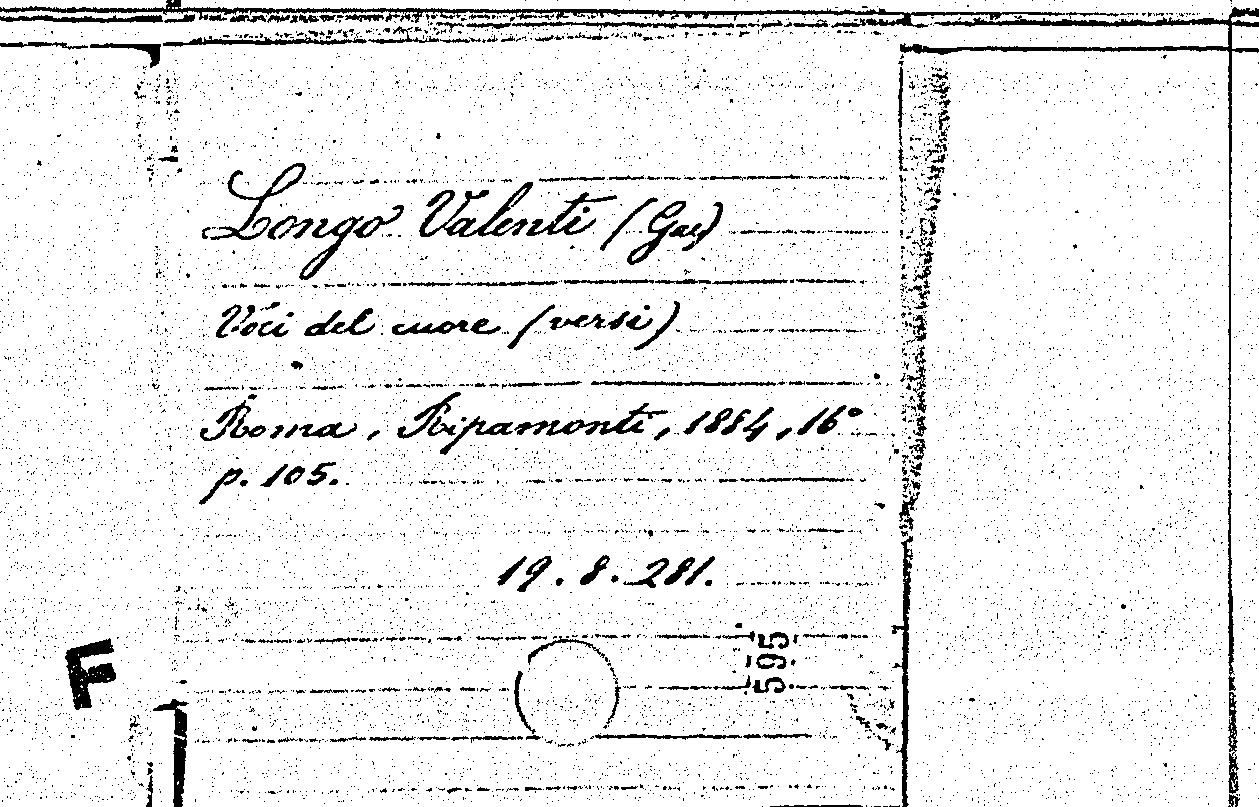 Longo Valenti (Gas)
Voci del cuore (versi)
Roma, Ripamonti, 1884, 16°
p. 105.
19.8.281.
595
F